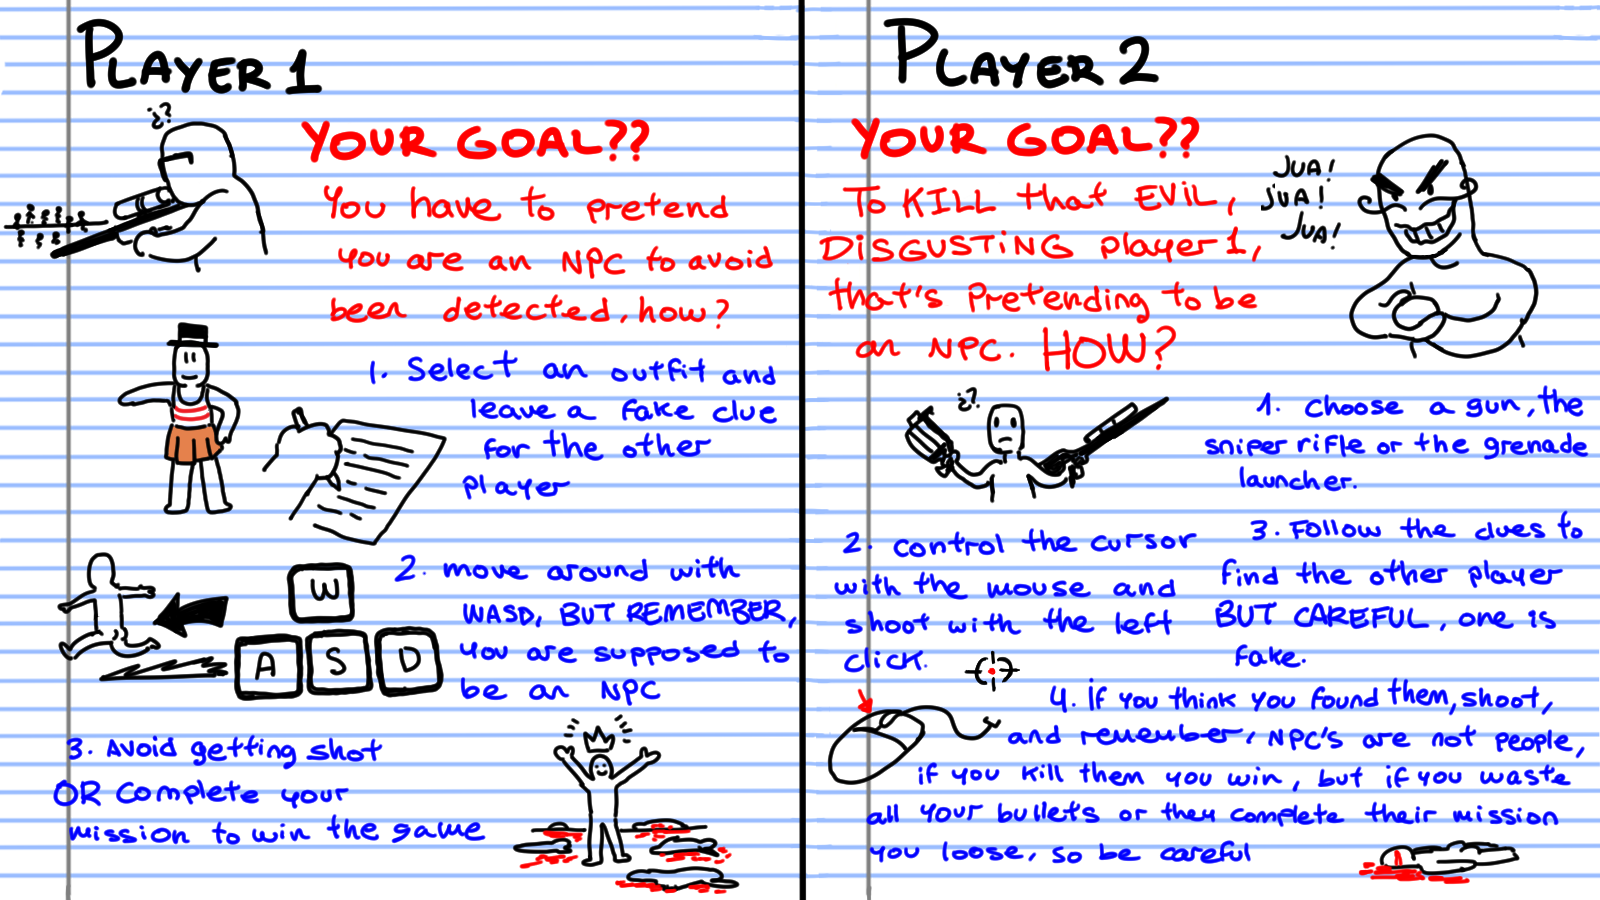 PLAYER 1
¿??
YOUR GOAL??
You have to pretend
you are an NPC to avoid
been detected, how?
1. Select an outfit and
leave a fake clue
for the other
player
2. move around with
WASD, BUT REMEMBER,
you are supposed to
be an NPC
W
A S D
3. Avoid getting shot
OR complete your
mission to win the game
PLAYER 2
YOUR GOAL??
To KILL that EVIL,
DISGUSTING player 1,
that's Pretending to be
an NPC. HOW?
JUA!
JUA!
JUA!
¿??
1. Choose a gun, the
sniper rifle or the grenade
launcher.
2. control the cursor
with the mouse and
shoot with the left
click.
3. Follow the clues to
find the other player
BUT CAREFUL, one is
fake.
4. if you think you found them, shoot,
and remember, NPC's are not people,
if you kill them you win, but if you waste
all your bullets or they complete their mission
you loose, so be careful